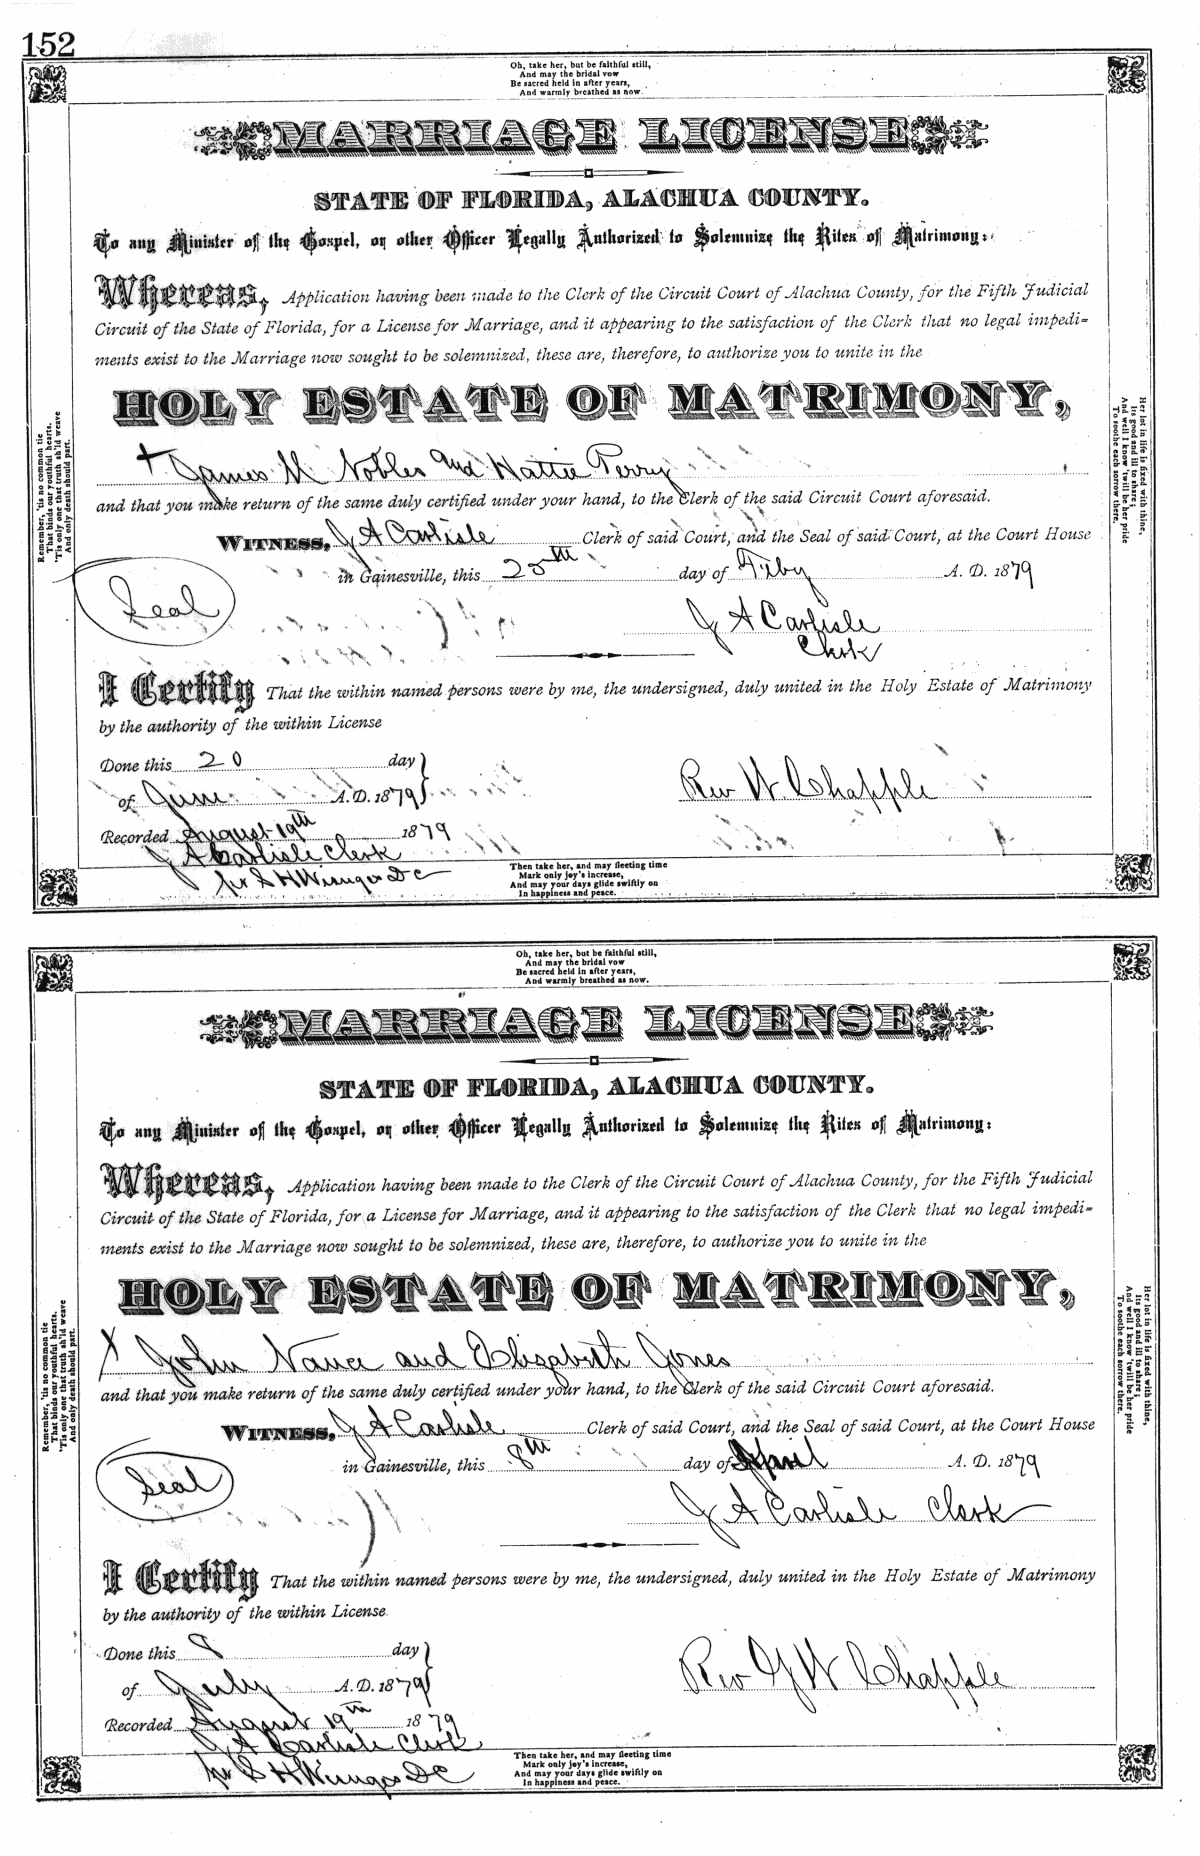 152
Oh, take her, but be faithful still,
And may the bridal vow
Be sacred held in after years,
And warmly breathed as now.
MARRIAGE LICENSE
STATE OF FLORIDA, ALACHUA COUNTY.
To any Minister of the Gospel, or other Officer Legally Authorized to Solemnize the Rites of Matrimony:
Whereas, Application having been made to the Clerk of the Circuit Court of Alachua County, for the Fifth Judicial
Circuit of the State of Florida, for a License for Marriage, and it appearing to the satisfaction of the Clerk that no legal impedi=
ments exist to the Marriage now sought to be solemnized, these are, therefore, to authorize you to unite in the
HOLY ESTATE OF MATRIMONY,
James M Nobles and Hattie Perry
and that you make return of the same duly certified under your hand, to the Clerk of the said Circuit Court aforesaid.
WITNESS, J A Carlisle Clerk of said Court, and the Seal of said Court, at the Court House
in Gainesville, this day of Feby A. D. 1879
Seal
J A Carlisle
Clerk
I Certify That the within named persons were by me, the undersigned, duly united in the Holy Estate of Matrimony
by the authority of the within License
Done this 20 day
of June A.D. 1879
Rev W Chapple
Recorded August 19th 1879
J A Carlisle Clerk
pr S H DC
Remember, 'tis no common tie
That binds our youthful hearts.
'Tis only one that truth sh'ld weave
And only death should part.
Her lot in life is fixed with thine,
Its good and ill to share;
And well I know 'twill be her pride
To soothe each sorrow there.
Then take her, and may fleeting time
Mark only joy's increase,
And may your days glide swiftly on
In happiness and peace.
Oh, take her, but be faithful still,
And may the bridal vow
Be sacred held in after years,
And warmly breathed as now.
MARRIAGE LICENSE
STATE OF FLORIDA, ALACHUA COUNTY.
To any Minister of the Gospel, or other Officer Legally Authorized to Solemnize the Rites of Matrimony:
Whereas, Application having been made to the Clerk of the Circuit Court of Alachua County, for the Fifth Judicial
Circuit of the State of Florida, for a License for Marriage, and it appearing to the satisfaction of the Clerk that no legal impedi=
ments exist to the Marriage now sought to be solemnized, these are, therefore, to authorize you to unite in the
HOLY ESTATE OF MATRIMONY,
X John Nance and Elizabeth Jones
and that you make return of the same duly certified under your hand, to the Clerk of the said Circuit Court aforesaid.
WITNESS, J A Carlisle Clerk of said Court, and the Seal of said Court, at the Court House
in Gainesville, this 8th day of April A. D. 1879
Seal
J A Carlisle Clerk
I Certify That the within named persons were by me, the undersigned, duly united in the Holy Estate of Matrimony
by the authority of the within License.
Done this 8 day
of July A.D. 1879
Rev G W Chapple
Recorded August 19th 1879
J A Carlisle Clerk
pr S H DC
Remember, 'tis no common tie
That binds our youthful hearts.
'Tis only one that truth sh'ld weave
And only death should part.
Her lot in life is fixed with thine,
Its good and ill to share;
And well I know 'twill be her pride
To soothe each sorrow there.
Then take her, and may fleeting time
Mark only joy's increase,
And may your days glide swiftly on
In happiness and peace.